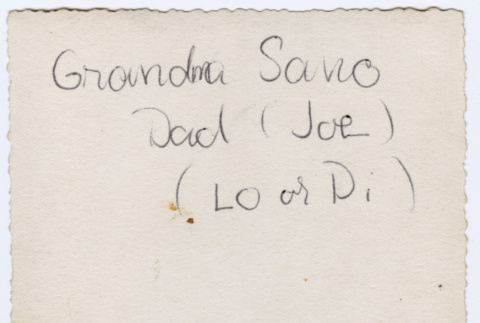 Grandma Sano
Dad (Joe)
(LO or Di)